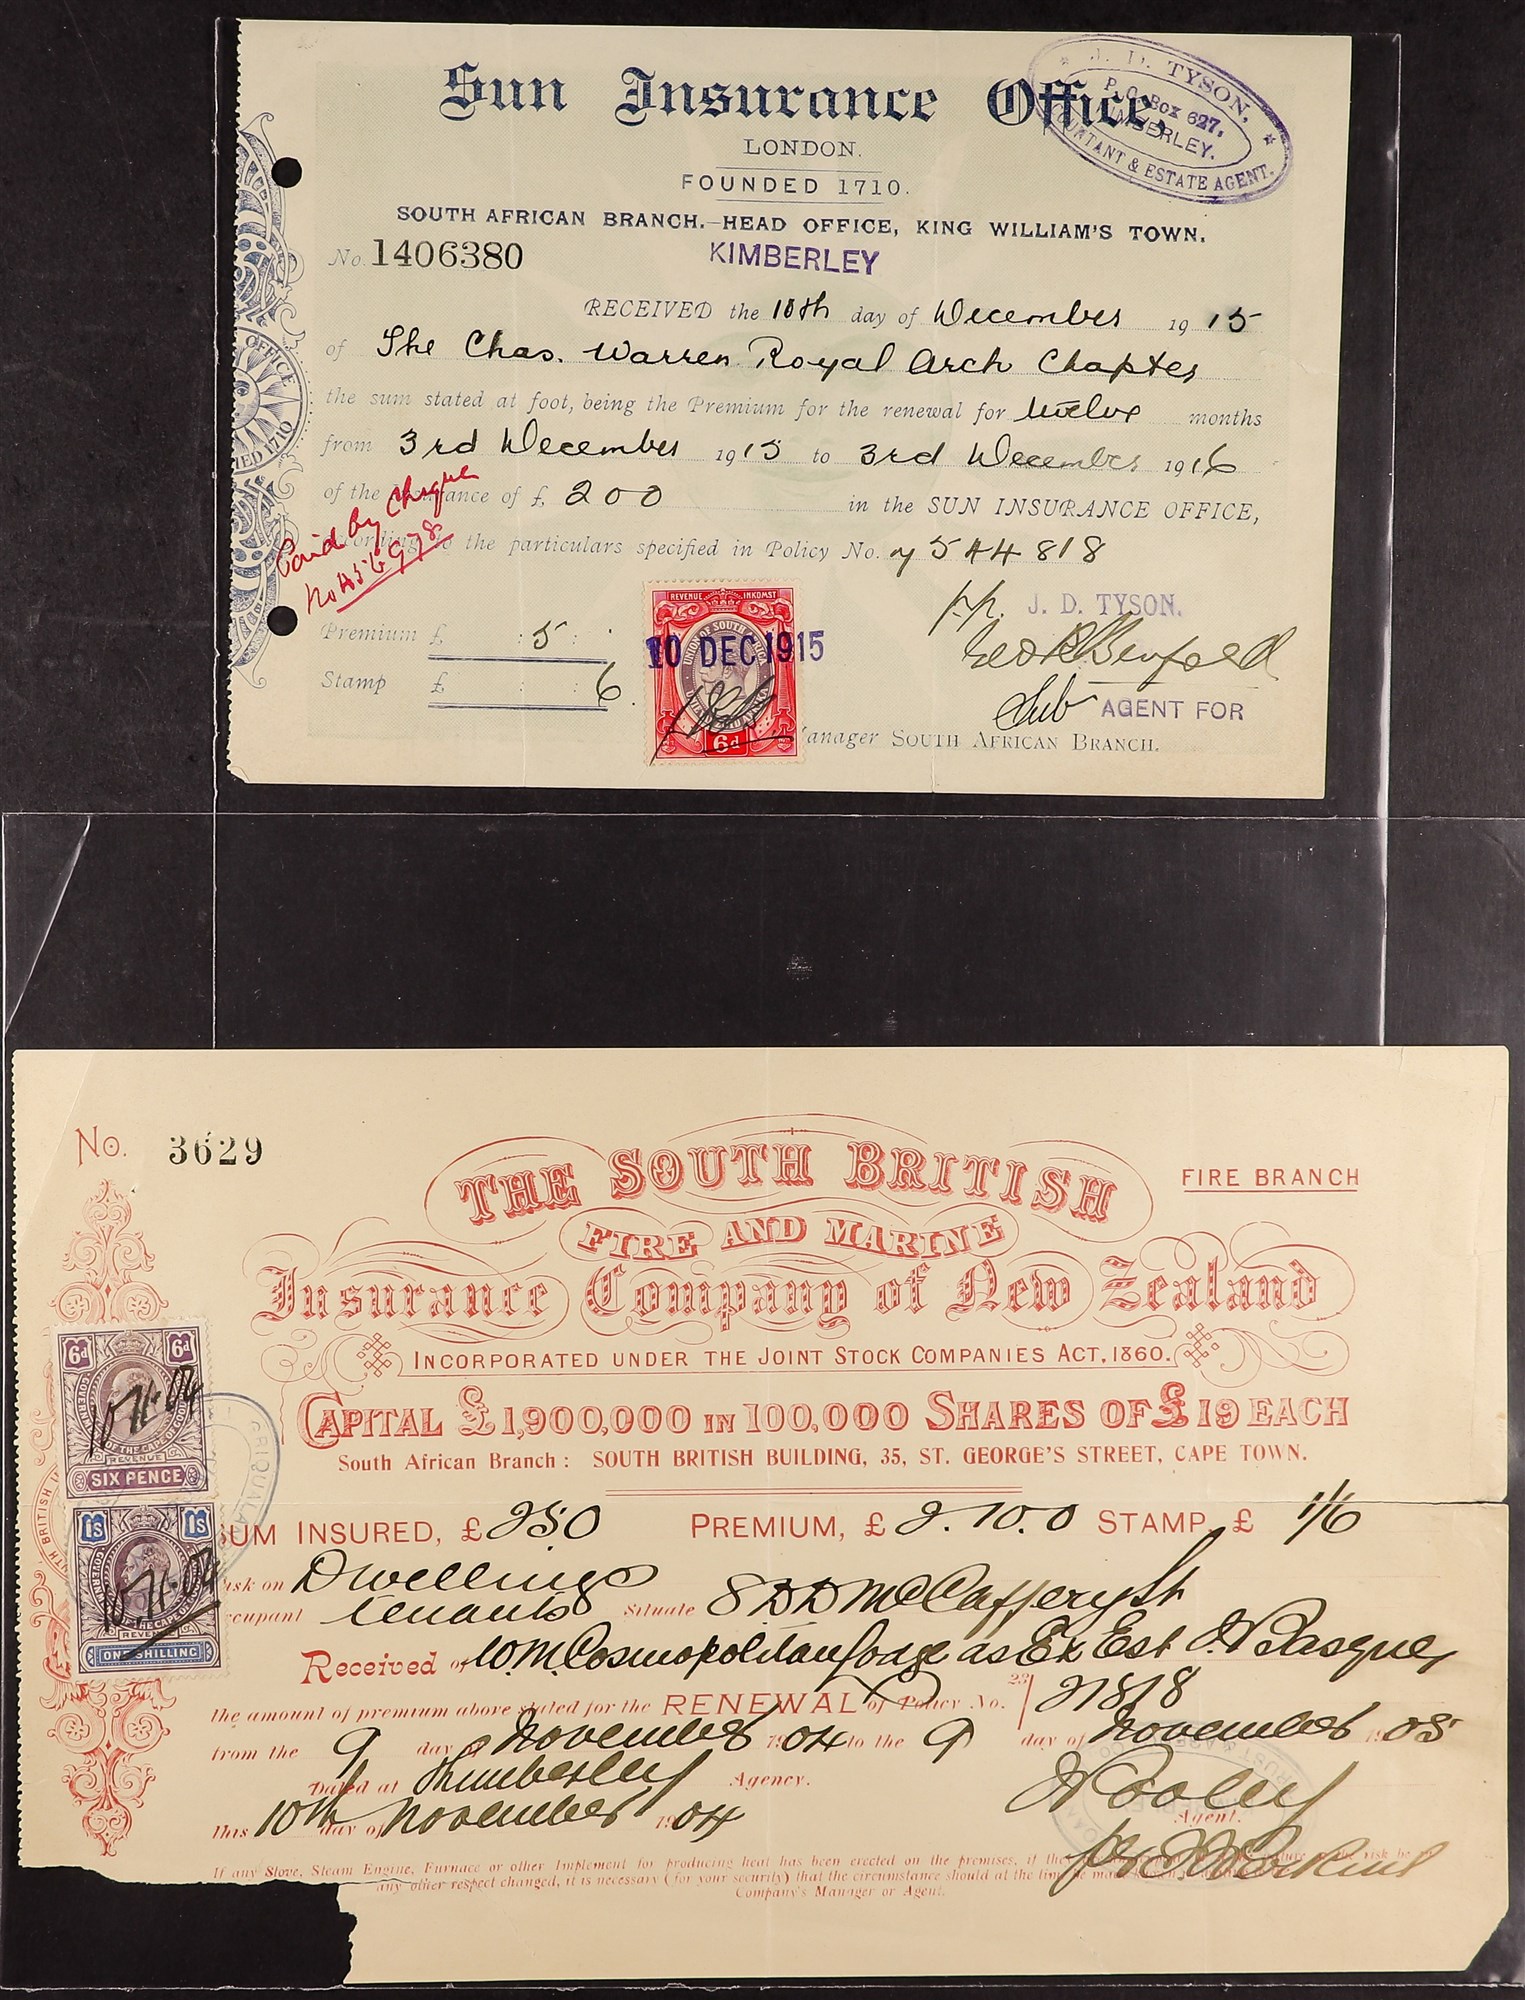 Sun Insurance Office,
LONDON.
FOUNDED 1710.
SOUTH AFRICAN BRANCH.—HEAD OFFICE, KING WILLIAM'S TOWN.
J. D. TYSON,
P.O. BOX 627,
KIMBERLEY.
ACCOUNTANT & ESTATE AGENT.
No. 1406380
KIMBERLEY
RECEIVED the 10th day of December 1915
of The Chas. Warren Royal Arch Chapter
the sum stated at foot, being the Premium for the renewal for twelve months
from 3rd December 1915 to 3rd December 1916
of the Insurance of £ 200 in the SUN INSURANCE OFFICE,
according to the particulars specified in Policy No. 7544818
Paid by Cheque
No
OFFICE
1710
Premium £ : 5 :
Stamp £ : : 6.
REVENUE INKOMST
UNION OF SOUTH AFRICA
10 DEC 1915
6d
p.p. J. D. TYSON.
Sub AGENT FOR
Manager SOUTH AFRICAN BRANCH.
No. 3629
FIRE BRANCH
THE SOUTH BRITISH
FIRE AND MARINE
Insurance Company of New Zealand
INCORPORATED UNDER THE JOINT STOCK COMPANIES ACT, 1860.
CAPITAL £1,900,000 IN 100,000 SHARES OF £19 EACH
South African Branch: SOUTH BRITISH BUILDING, 35, ST. GEORGE'S STREET, CAPE TOWN.
6d 6d
10.11.04
OF THE CAPE OF GOOD
REVENUE
SIX PENCE
1s 1s
10.11.04
REVENUE
ONE SHILLING
SUM INSURED, £ 250 PREMIUM, £ 2.10.0 STAMP £ 1/6
Risk on Dwellings
Occupant tenants Situate 8 DD McCafferySt
Received of W.M. Cosmopolitan Lodge as Ex Est
the amount of premium above stated for the RENEWAL of Policy No. 23/21818
from the 9 day of November 1904 to the 9 day of November 1905
Dated at Kimberley Agency.
This 10th day of November 1904
Agent.
If any Stove, Steam Engine, Furnace or other Implement for producing heat has been erected on the premises, if the
any other respect changed, it is necessary (for your security) that the circumstance should at the time be made
Company's Manager or Agent.